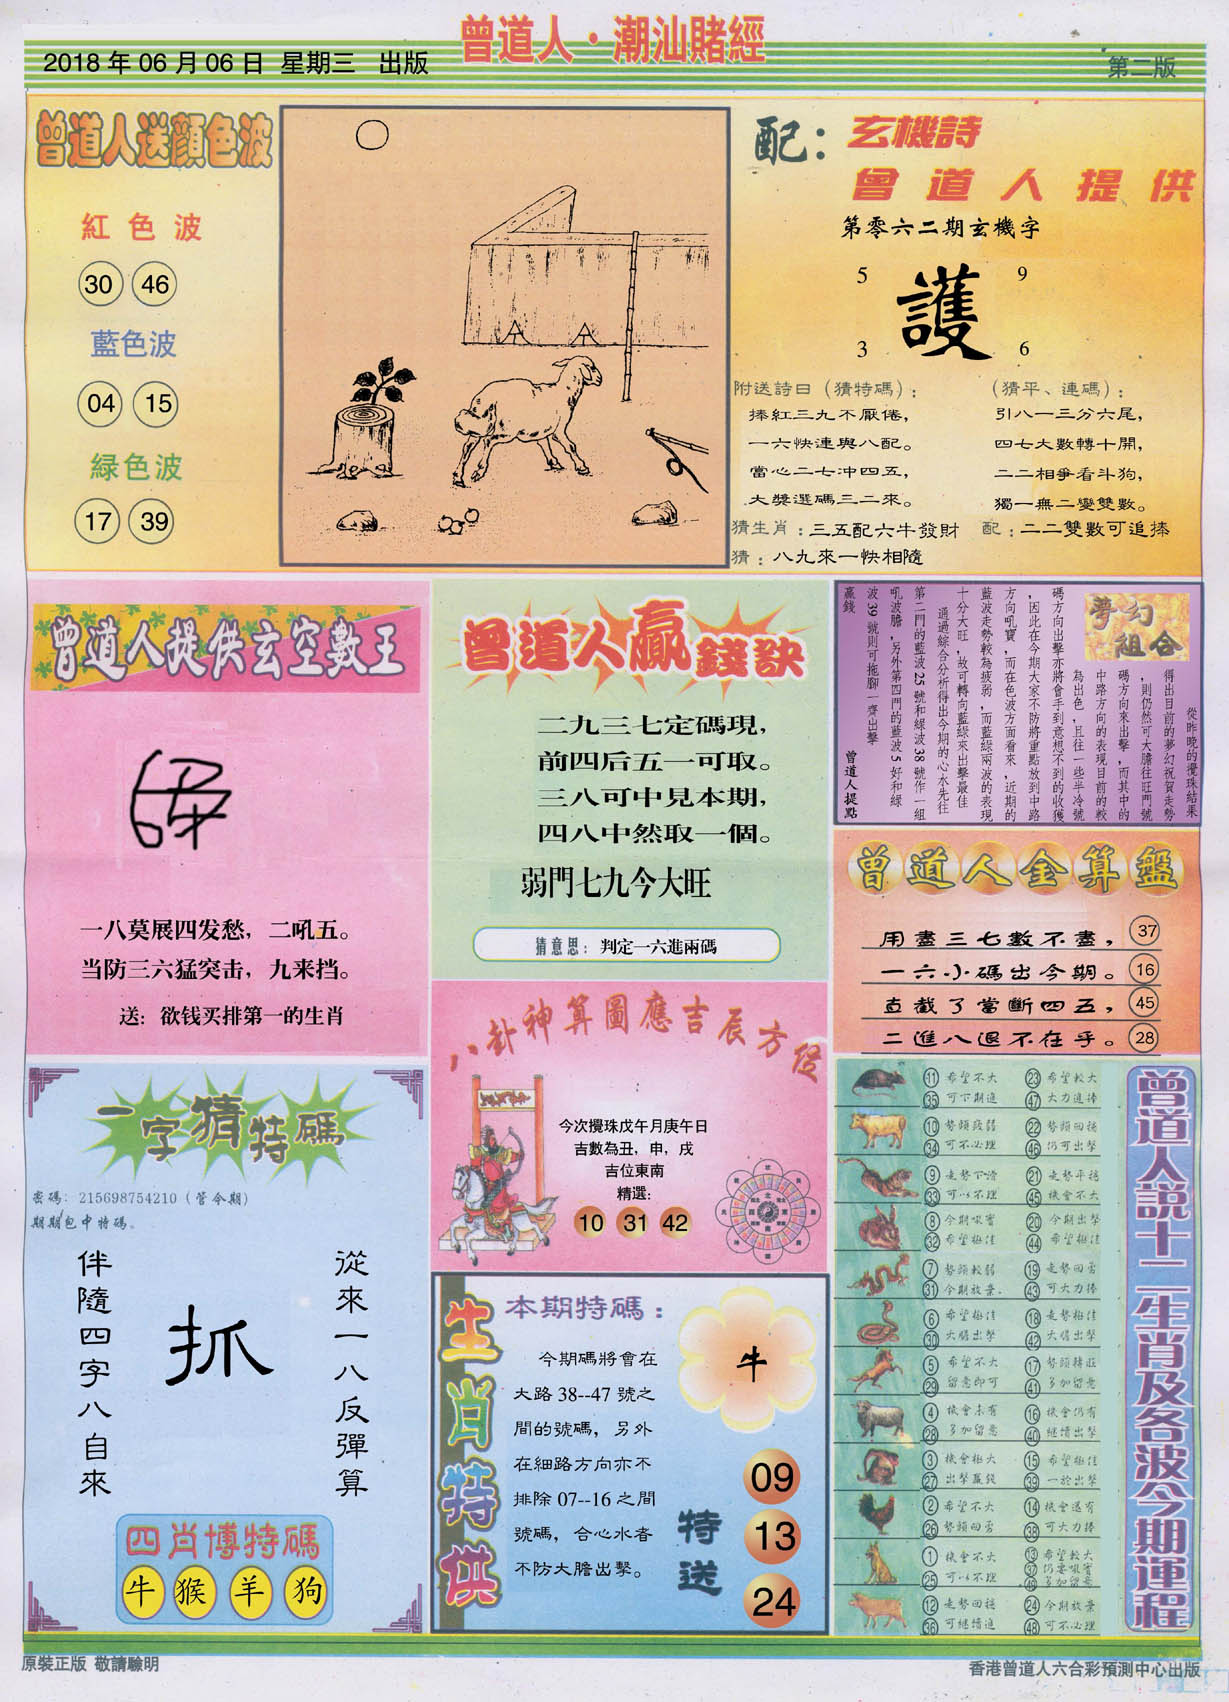 曾道人·潮汕賭經
2018 年 06 月 06 日 星期三 出版
第二版
曾道人送顏色波
紅色波
30 46
藍色波
04 15
緑色波
17 39
配：玄機詩
曾道人提供
第零六二期玄機字
5 9
護
3 6
附送詩曰（猜特碼）：
捧紅三九不厭倦，
一六快連與八配。
當心二七沖四五，
大獎選碼三二來。
（猜平、連碼）：
引八一三分六尾，
四七大數轉十開，
二二相爭看斗狗，
獨一無二變雙數。
猜生肖：三五配六牛發財
配：二二雙數可追捧
猜：八九來一快相隨
曾道人提供玄空數王
一八莫展四发愁，二吼五。
当防三六猛突击，九来挡。
送：欲钱买排第一的生肖
曾道人贏錢訣
二九三七定碼現，
前四后五一可取。
三八可中見本期，
四八中然取一個。
弱門七九今大旺
猜意思：判定一六進兩碼
夢幻
組合
從昨晚的攪珠結果
得出目前的夢幻祝賀走勢
，則仍然可大膽往旺門號
碼方向來出擊，而其中的
中路方向的表現目前的較
為出色，且往一些半冷號
碼方向出擊亦將會手到意想不到的收獲
，因此在今期大家不防將重點放到中路
方向吼寶，而在色波方面看來，近期的
藍波走勢較為疲弱，而藍綠兩波的表現
十分大旺，故可轉向藍綠來出擊最佳
通過綜合分析得出今期的心水先往
第二門的藍波 25 號和綠波 38 號作一組
吼波膽，另外第四門的藍波 5 好和綠
波 39 號則可拖腳一齊出擊
贏錢
曾道人提點
曾道人金算盤
用盡三七數不盡， 37
一六小碼出今期。 16
直截了當斷四五， 45
二進八退不在乎。 28
八卦神算圖應吉辰方位
今次攪珠戊午月庚午日
吉數為丑，申，戌
吉位東南
精選:
10 31 42
一字猜特碼
密碼：215698754210（管今期）
期期包中特碼。
從來一八反彈算
抓
伴隨四字八自來
四肖博特碼
牛 猴 羊 狗
生肖特供
本期特碼：
牛
今期碼將會在
大路 38--47 號之
間的號碼，另外
在細路方向亦不
排除 07--16 之間
號碼，合心水者
不防大膽出擊。
特送
09
13
24
曾道人説十二生肖及各波今期運程
11 希望不大 23 希望較大
35 可下期進 47 大力進捧
10 勢頭疲弱 22 勢頭回穩
34 可不必理 46 仍可出擊
9 走勢下滑 21 走勢平穩
33 可以不理 45 機會不大
8 今期吸寶 20 今期出擊
32 希望極佳 44 希望極佳
7 勢頭較弱 19 走勢回勇
31 今期放棄 43 可大力捧
6 希望極佳 18 走勢極佳
30 大膽出擊 42 大膽出擊
5 希望不大 17 勢頭轉旺
29 留意即可 41 多加留意
4 機會未有 16 機會仍有
28 多加留意 40 繼續出擊
3 機會極大 15 希望極佳
27 出擊贏錢 39 一於出擊
2 希望不大 14 機會還有
26 勢頭回勇 38 可大力捧
1 機會不大 13 希望較大
25 可以不理 37 仍要吸寶
49 多加留意
12 走勢回穩 24 今期放棄
36 可繼續進 48 可不必理
原裝正版 敬請驗明
香港曾道人六合彩預測中心出版